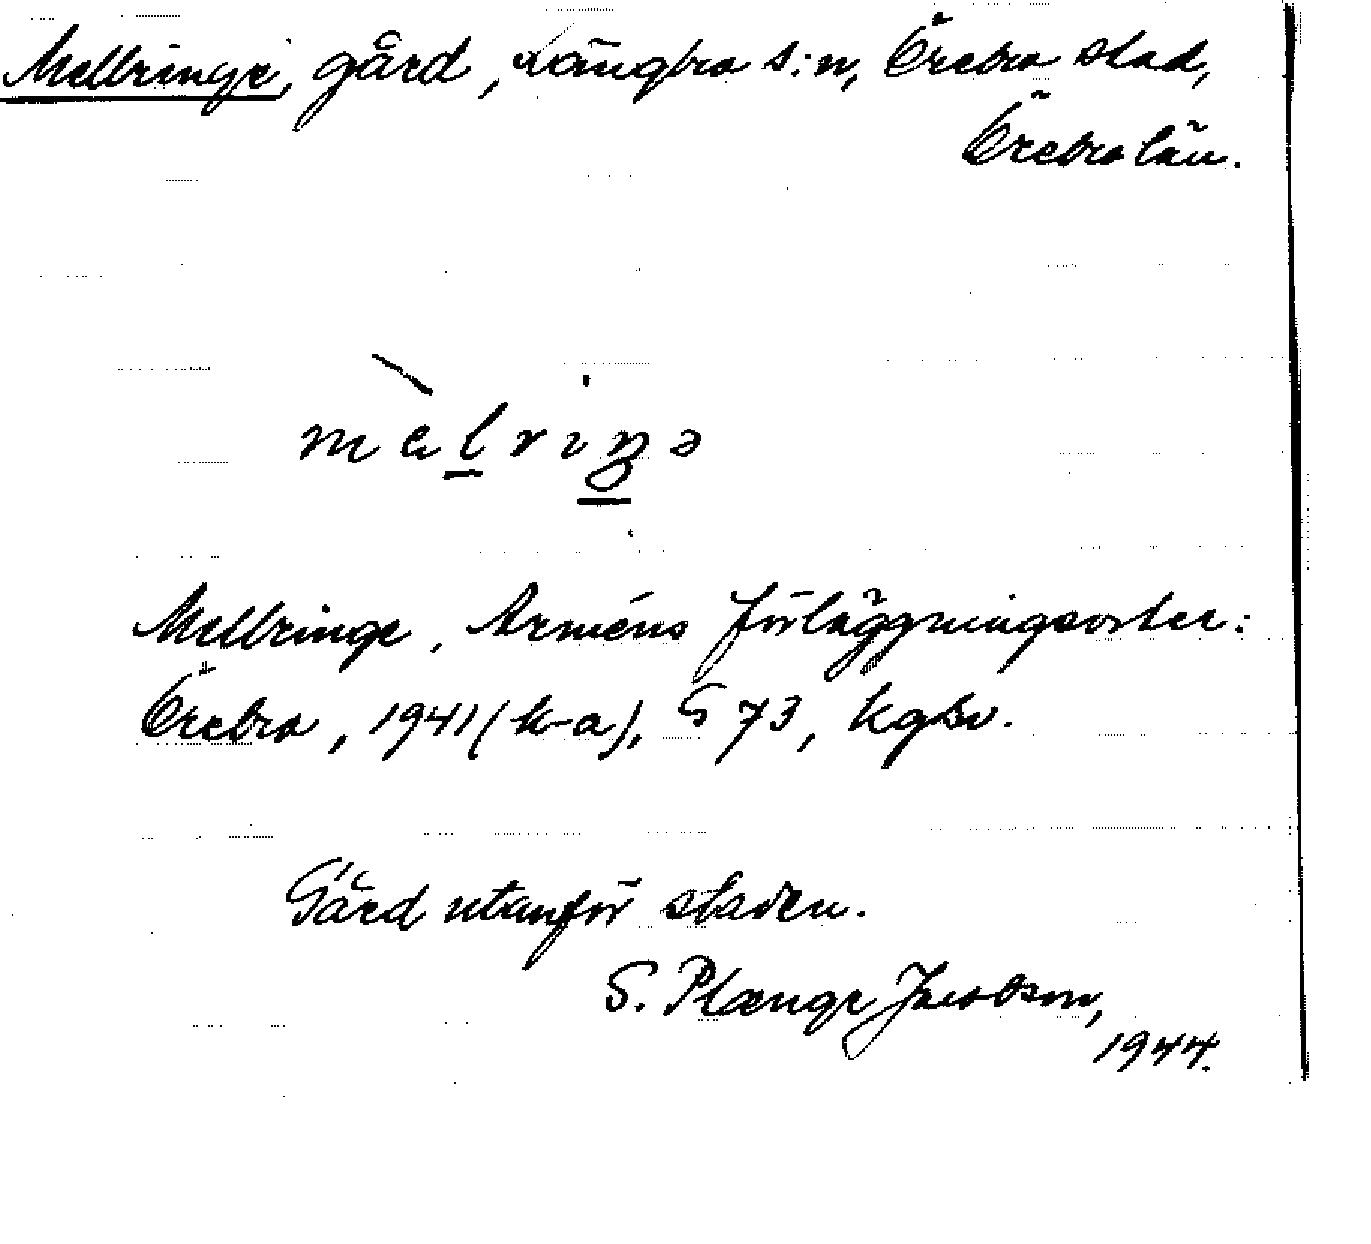 Mellringe, gård, Längbro s:n, Örebro stad,
Örebro län.
Mellringe, Arméns förläggningsorter:
Örebro, 1941 (k-a), § 73, kgsv.
Gård utanför staden.
S. Plænge Jacobson,
1944.